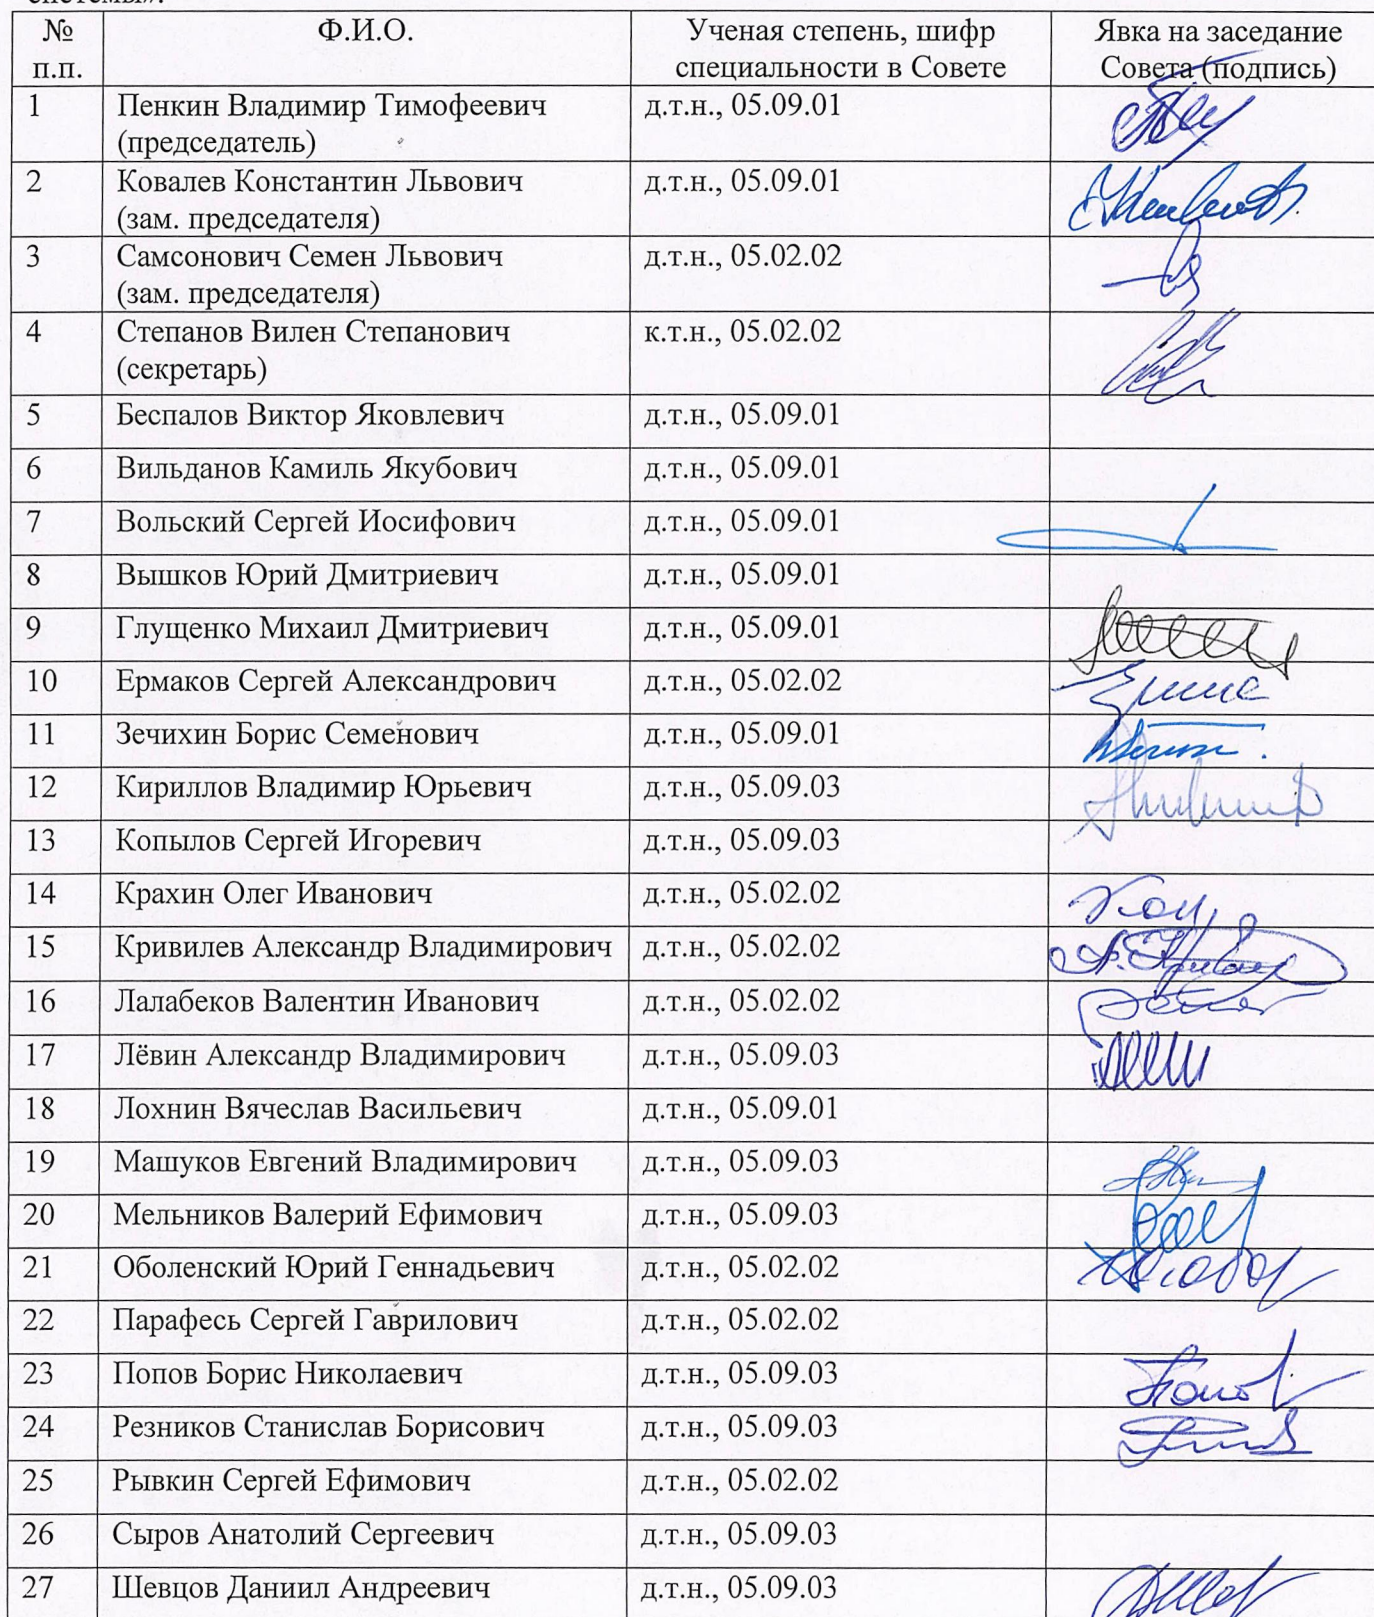 № Ф.И.О. Ученая степень, шифр Явка на заседание
п.п. специальности в Совете Совета (подпись)
1 Пенкин Владимир Тимофеевич д.т.н., 05.09.01
(председатель)
2 Ковалев Константин Львович д.т.н., 05.09.01
(зам. председателя)
3 Самсонович Семен Львович д.т.н., 05.02.02
(зам. председателя)
4 Степанов Вилен Степанович к.т.н., 05.02.02
(секретарь)
5 Беспалов Виктор Яковлевич д.т.н., 05.09.01
6 Вильданов Камиль Якубович д.т.н., 05.09.01
7 Вольский Сергей Иосифович д.т.н., 05.09.01
8 Вышков Юрий Дмитриевич д.т.н., 05.09.01
9 Глущенко Михаил Дмитриевич д.т.н., 05.09.01
10 Ермаков Сергей Александрович д.т.н., 05.02.02
11 Зечихин Борис Семенович д.т.н., 05.09.01
12 Кириллов Владимир Юрьевич д.т.н., 05.09.03
13 Копылов Сергей Игоревич д.т.н., 05.09.03
14 Крахин Олег Иванович д.т.н., 05.02.02
15 Кривилев Александр Владимирович д.т.н., 05.02.02
16 Лалабеков Валентин Иванович д.т.н., 05.02.02
17 Лёвин Александр Владимирович д.т.н., 05.09.03
18 Лохнин Вячеслав Васильевич д.т.н., 05.09.01
19 Машуков Евгений Владимирович д.т.н., 05.09.03
20 Мельников Валерий Ефимович д.т.н., 05.09.03
21 Оболенский Юрий Геннадьевич д.т.н., 05.02.02
22 Парафесь Сергей Гаврилович д.т.н., 05.02.02
23 Попов Борис Николаевич д.т.н., 05.09.03
24 Резников Станислав Борисович д.т.н., 05.09.03
25 Рывкин Сергей Ефимович д.т.н., 05.02.02
26 Сыров Анатолий Сергеевич д.т.н., 05.09.03
27 Шевцов Даниил Андреевич д.т.н., 05.09.03